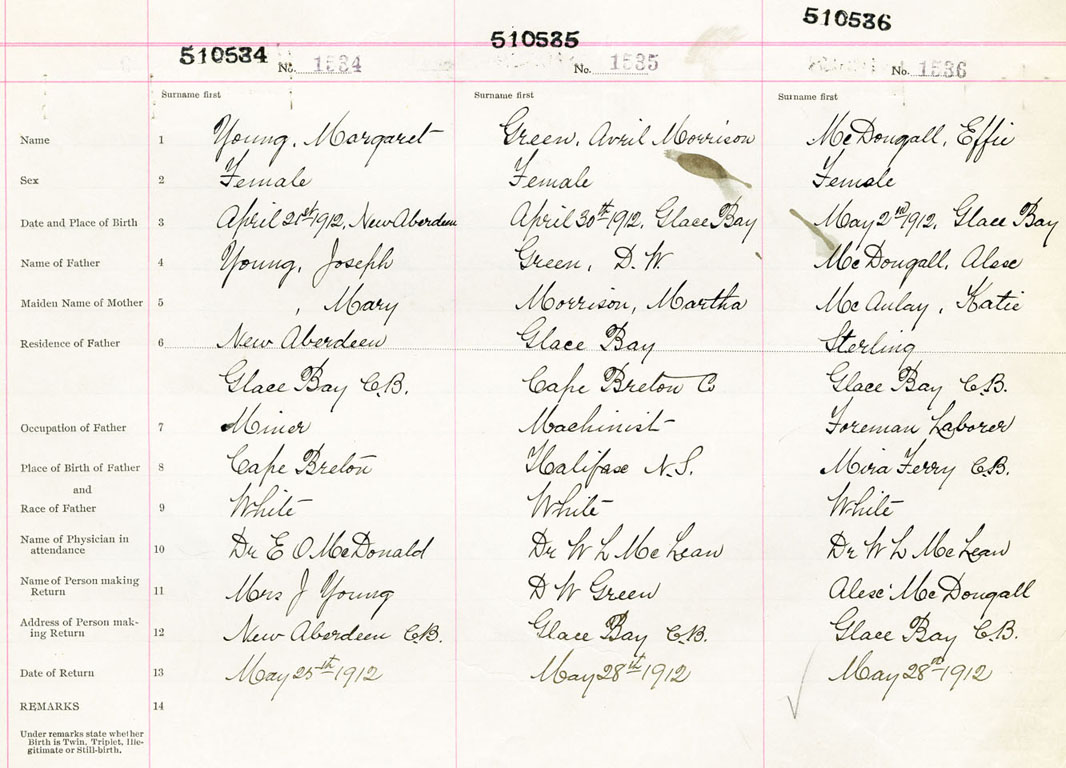 510534 510535 510536
No. 1534 No. 1535 No. 1536
Surname first Surname first Surname first
Name 1 Young, Margaret Green, Avril Morrison McDougall, Effie
Sex 2 Female Female Female
Date and Place of Birth 3 April 21st 1912, New Aberdeen April 30th 1912, Glace Bay May 2nd 1912, Glace Bay
Name of Father 4 Young, Joseph Green, D. W. McDougall, Alex
Maiden Name of Mother 5 , Mary Morrison, Martha McAulay, Katie
Residence of Father 6 New Aberdeen Glace Bay Sterling
Glace Bay C.B. Cape Breton Co Glace Bay C.B.
Occupation of Father 7 Miner Machinist Foreman Laborer
Place of Birth of Father 8 Cape Breton Halifax N.S. Mira Ferry C.B.
and
Race of Father 9 White White White
Name of Physician in
attendance 10 Dr E O McDonald Dr W L McLean Dr W L McLean
Name of Person making
Return 11 Mrs J Young D W Green Alex McDougall
Address of Person mak-
ing Return 12 New Aberdeen C.B. Glace Bay C.B. Glace Bay C.B.
Date of Return 13 May 25th 1912 May 28th 1912 May 28th 1912
REMARKS 14
Under remarks state whether
Birth is Twin, Triplet, Ille-
gitimate or Still-birth.